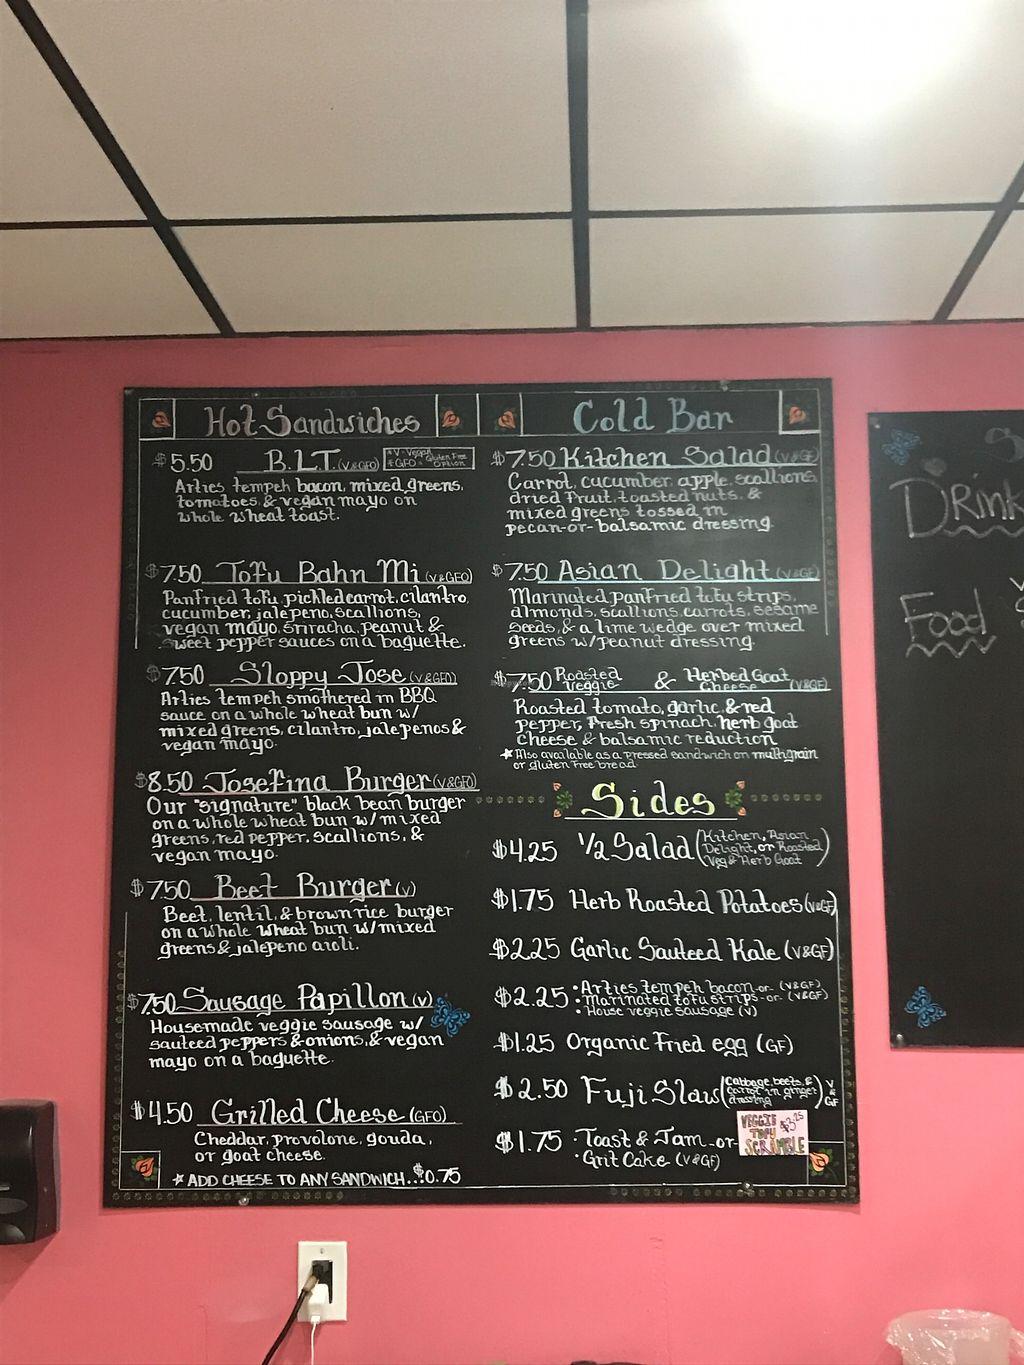 Hot Sandwiches
$5.50 B.L.T. (V&GFO)
*V-Vegan
*GFO - Gluten Free Option
Arties tempeh bacon, mixed greens,
tomatoes, & vegan mayo on
whole wheat toast.
$7.50 Tofu Bahn Mi (V&GFO)
Panfried tofu, pickled carrot, cilantro,
cucumber, jalepeno, scallions,
vegan mayo, sriracha, peanut &
sweet pepper sauces on a baguette.
$7.50 Sloppy Jose (V&GFO)
Arties tempeh smothered in BBQ
sauce on a whole wheat bun w/
mixed greens, cilantro, jalepenos &
vegan mayo.
$8.50 Josefina Burger (V&GFO)
Our "signature", black bean burger
on a whole wheat bun w/ mixed
greens, red pepper, scallions, &
vegan mayo.
$7.50 Beet Burger (V)
Beet, lentil, & brown rice burger
on a whole wheat bun w/ mixed
greens & jalepeno aioli.
$7.50 Sausage Papillon (V)
Housemade veggie sausage w/
sauteed peppers & onions, & vegan
mayo on a baguette.
$4.50 Grilled Cheese (GFO)
Cheddar, provolone, gouda,
or goat cheese.
* ADD CHEESE TO ANY SANDWICH...$0.75
Cold Bar
$7.50 Kitchen Salad (V&GF)
Carrot, cucumber, apple, scallions,
dried fruit, toasted nuts, &
mixed greens tossed in
pecan-or-balsamic dressing.
$7.50 Asian Delight (V&GF)
Marinated panfried tofu strips,
almonds, scallions, carrots, sesame
seeds, & a lime wedge over mixed
greens w/ peanut dressing.
$7.50 Roasted Veggie & Herbed Goat Cheese (V&GF)
Roasted tomato, garlic, & red
pepper, fresh spinach, herb goat
cheese & balsamic reduction
* Also available as a pressed sandwich on multigrain
or gluten free bread.
Sides
$4.25 1/2 Salad (Kitchen, Asian
Delight, or Roasted
Veg & Herb Goat)
$1.75 Herb Roasted Potatoes (V&GF)
$2.25 Garlic Sauteed Kale (V&GF)
$2.25 • Arties tempeh bacon -or- (V&GF)
• Marinated tofu strips -or- (V&GF)
• House veggie sausage (V)
$1.25 Organic Fried egg (GF)
$2.50 Fuji Slaw (Cabbage, beets, &
Carrot in ginger
dressing) V & GF
$1.75 • Toast & Jam -or-
• Grit Cake (V&GF)
VEGGIE $3.25
TOFU
SCRAMBLE
Drink
Food